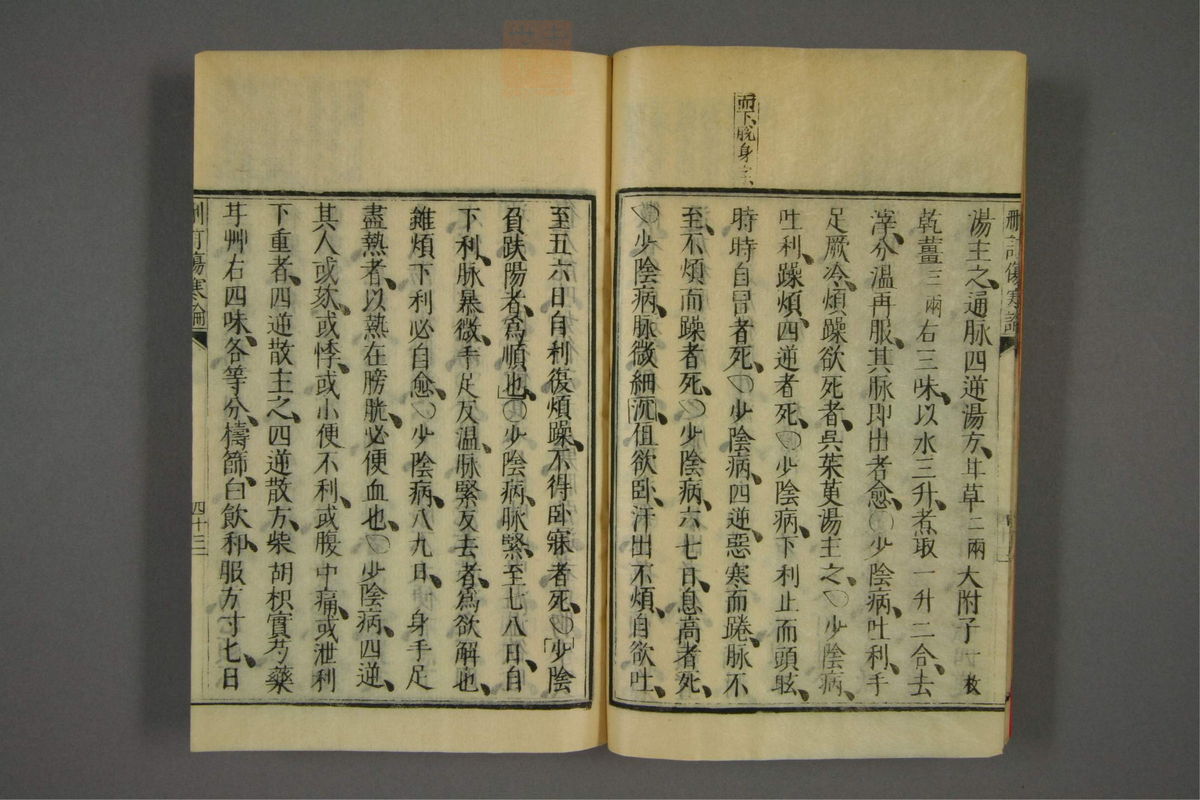 刪訂傷寒論
湯主之、通脉四逆湯方、甘草二兩大附子一枚
乾薑三兩右三味、以水三升、煮取一升二合、去
滓、分溫再服、其脉即出者愈、〇少陰病、吐利、手
足厥冷、煩躁欲死者、吳茱萸湯主之、〇少陰病、
吐利、躁煩、四逆者死、〇少陰病、下利止而頭眩、
時時自冒者死、〇少陰病、四逆、惡寒而踡、脉不
而下脫身
至、不煩而躁者死、〇少陰病、六七日、息高者死、
〇少陰病、脉微細沉、但欲卧、汗出不煩、自欲吐、
至五六日、自利、復煩躁、不得卧寐者死、〇「少陰
負趺陽者、爲順也、」〇少陰病、脉緊、至七八日、自
下利、脉暴微、手足反溫、脉緊反去者、爲欲解也、
雖煩下利必自愈、〇少陰病、八九日、一身手足
盡熱者、以熱在膀胱、必便血也、〇少陰病、四逆、
其人或欬、或悸、或小便不利、或腹中痛、或泄利
下重者、四逆散主之、四逆散方、柴胡枳實芍藥
甘艸右四味、各等分、擣篩、白飲和、服方寸七、日
刪訂傷寒論
四十三